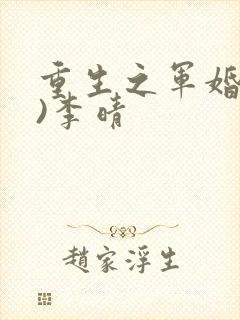 重生之军婚
)李晴
趙家浮生